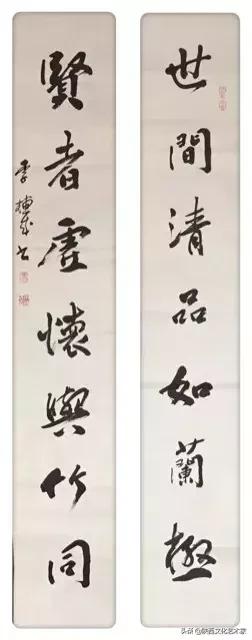 世間清品如蘭極
賢者虛懷與竹同
李 书
头条 @陕西文化艺术家